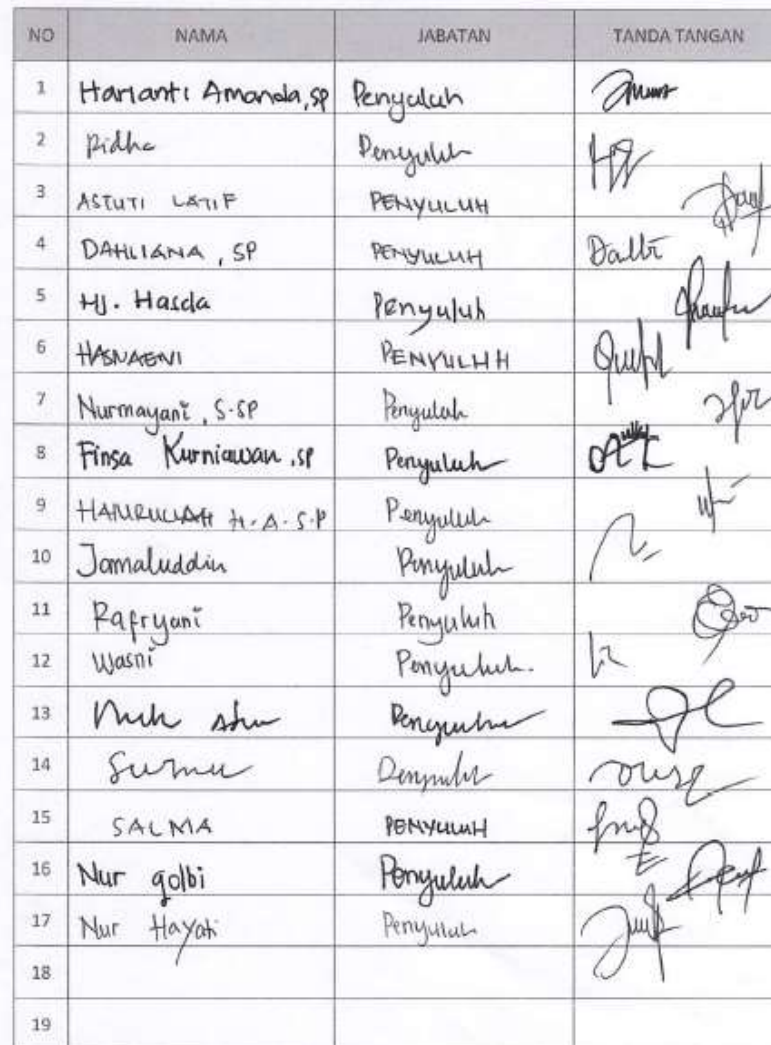 NO NAMA JABATAN TANDA TANGAN
1 Harianti Amanda, SP Penyuluh
2 Ridha Penyuluh
3 ASTUTI LATIF PENYULUH
4 DAHLIANA, SP PENYULUH
5 HJ. Hasda Penyuluh
6 HASNAENI PENYULUH
7 Nurmayani, S.SP Penyuluh
8 Finsa Kurniawan, SP Penyuluh
9 H.A.S.P Penyuluh
10 Jamaluddin Penyuluh
11 Rafryani Penyuluh
12 Wasni Penyuluh.
13 Muh Penyuluh
14 Penyuluh
15 SALMA PENYULUH
16 Nur qolbi Penyuluh
17 Nur Hayati Penyuluh
18
19